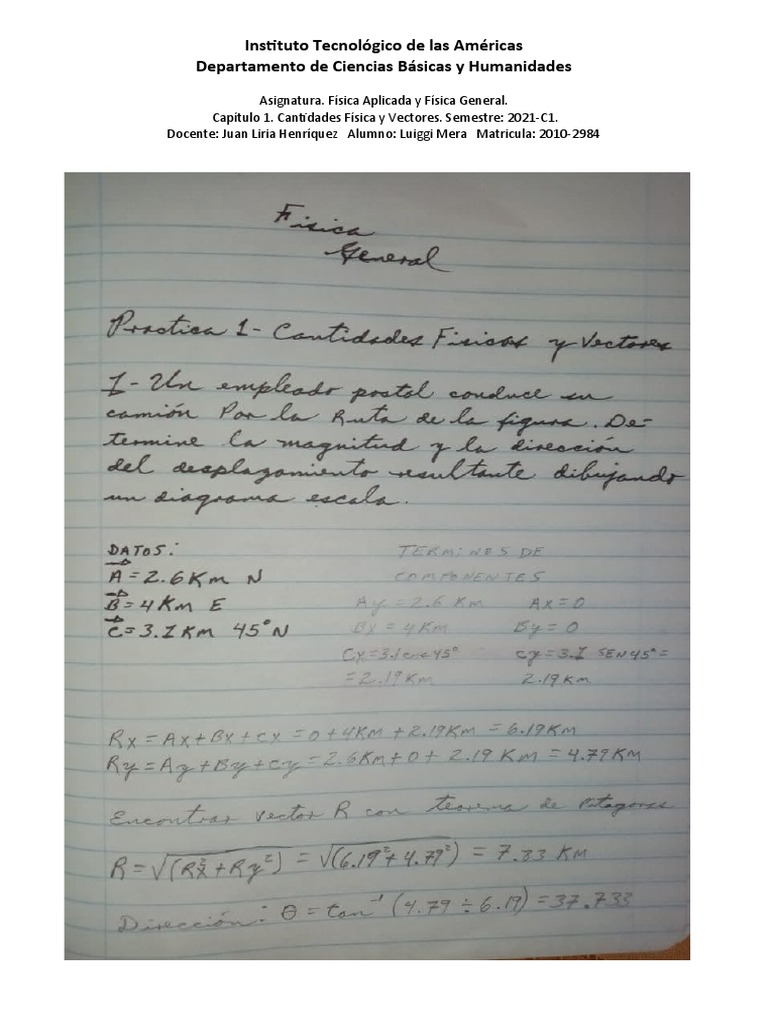 Instituto Tecnológico de las Américas
Departamento de Ciencias Básicas y Humanidades
Asignatura. Física Aplicada y Física General.
Capítulo 1. Cantidades Física y Vectores. Semestre: 2021-C1.
Docente: Juan Liria Henríquez Alumno: Luiggi Mera Matricula: 2010-2984
Fisica
General
Practica 1- Cantidades Fisicas y Vectores
1- Un empleado postal conduce su
camión Por la Ruta de la figura. De-
termine la magnitud y la dirección
del desplazamiento resultante dibujando
un diagrama escala.
DATOS:
A = 2.6 Km N
B = 4 Km E
C = 3.1 Km 45° N
TERMINES DE
COMPONENTES
Ay = 2.6 Km Ax = 0
Bx = 4 Km By = 0
Cx = 3.1 cos 45° Cy = 3.1 SEN 45° =
= 2.19 Km 2.19 Km
Rx = Ax + Bx + Cx = 0 + 4 Km + 2.19 Km = 6.19 Km
Ry = Ay + By + Cy = 2.6 Km + 0 + 2.19 Km = 4.79 Km
Encontrar vector R con teorema de Pitagoras
R = √(Rx² + Ry²) = √(6.19² + 4.79²) = 7.83 KM
Dirección: θ = tan⁻¹ (4.79 ÷ 6.19) = 37.733